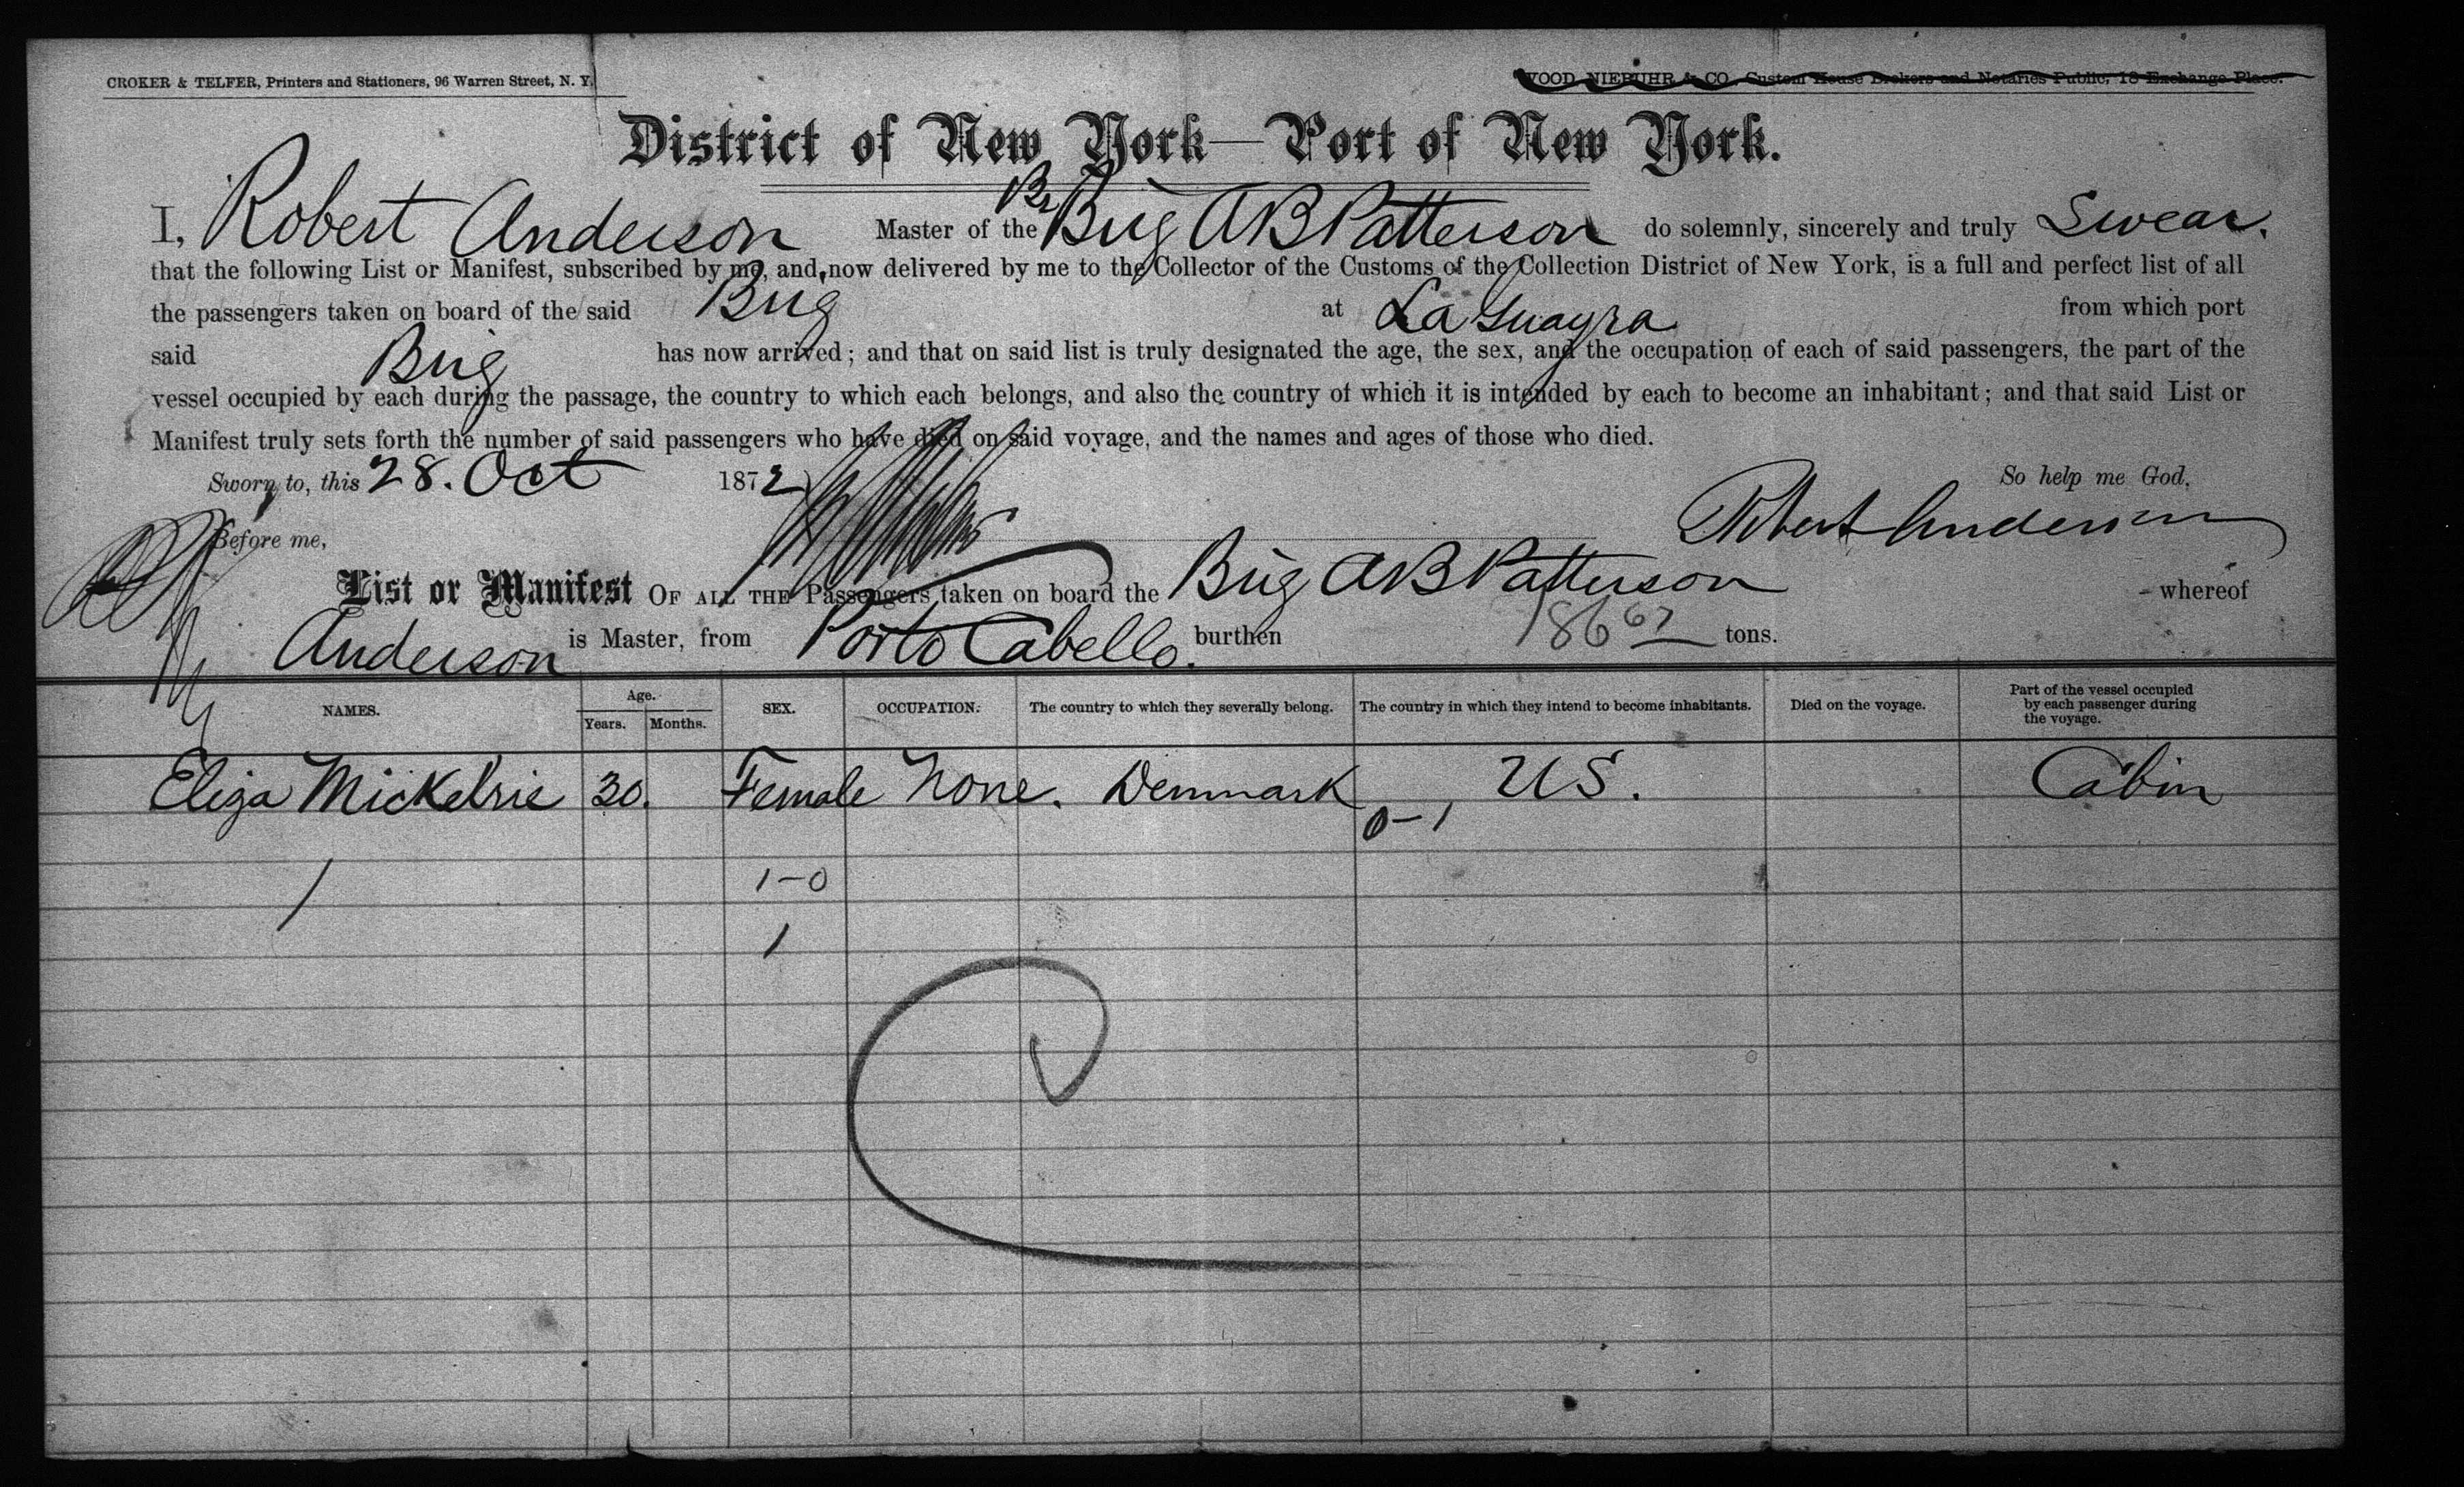 CROKER & TELFER, Printers and Stationers, 96 Warren Street, N. Y.
WOOD, NIEBUHR & CO. Custom House Brokers and Notaries Public, 18 Exchange Place.
District of New York—Port of New York.
I, Robert Anderson Master of the Br Brig A B Patterson do solemnly, sincerely and truly Swear.
that the following List or Manifest, subscribed by me, and now delivered by me to the Collector of the Customs of the Collection District of New York, is a full and perfect list of all
the passengers taken on board of the said Brig at La Guayra from which port
said Brig has now arrived; and that on said list is truly designated the age, the sex, and the occupation of each of said passengers, the part of the
vessel occupied by each during the passage, the country to which each belongs, and also the country of which it is intended by each to become an inhabitant; and that said List or
Manifest truly sets forth the number of said passengers who have died on said voyage, and the names and ages of those who died.
Sworn to, this 28. Oct 1872 So help me God,
Before me, Robert Anderson
List or Manifest OF ALL THE Passengers taken on board the Brig A B Patterson whereof
Anderson is Master, from Porto Cabello. burthen 186 67 tons.
NAMES. Age. Years. Months. SEX. OCCUPATION. The country to which they severally belong. The country in which they intend to become inhabitants. Died on the voyage. Part of the vessel occupied by each passenger during the voyage.
Eliza Mickelsie 30. Female None. Denmark US. Cabin
0-1
1 1-0
1